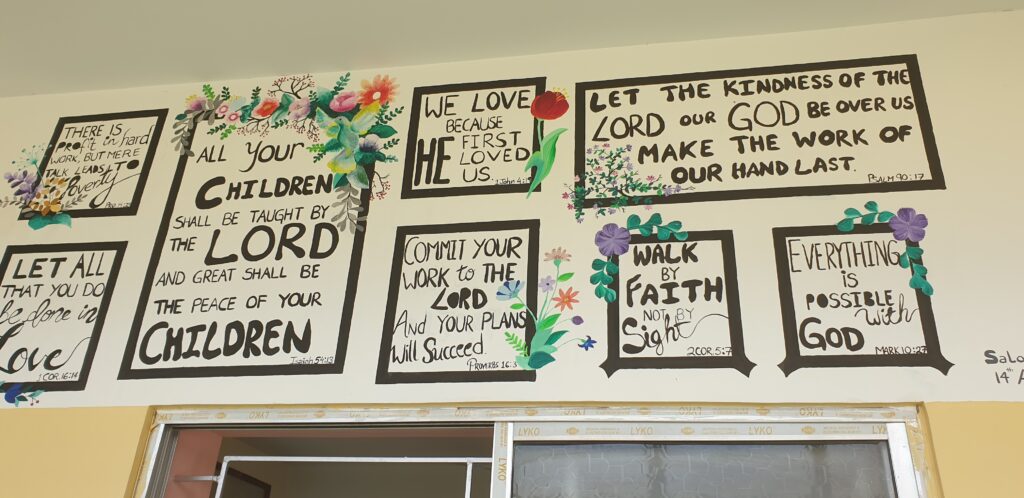 THERE IS
profit in hard
WORK, BUT MERE
TALK LEADS TO
Poverty
LET ALL
THAT YOU DO
be done in
Love
1 COR. 16:14
ALL YOUR
CHILDREN
SHALL BE TAUGHT BY
THE LORD
AND GREAT SHALL BE
THE PEACE OF YOUR
CHILDREN
Isaiah 54:13
WE LOVE
BECAUSE
HE FIRST
LOVED
US.
1 John 4:
COMMIT YOUR
WORK to THE
LORD
AND YOUR PLANS
Will Succeed.
PROVERBS 16:3
LET THE KINDNESS OF THE
LORD OUR GOD BE OVER US
MAKE THE WORK OF
OUR HAND LAST.
PSALM 90:17
WALK
BY
FAITH
NOT BY
Sight
2COR. 5:7
EVERYTHING
is
POSSIBLE
with
GOD
MARK 10:27
14th
LYKO
LYKO
LYKO
LYKO
LYKO
LYKO
LYKO